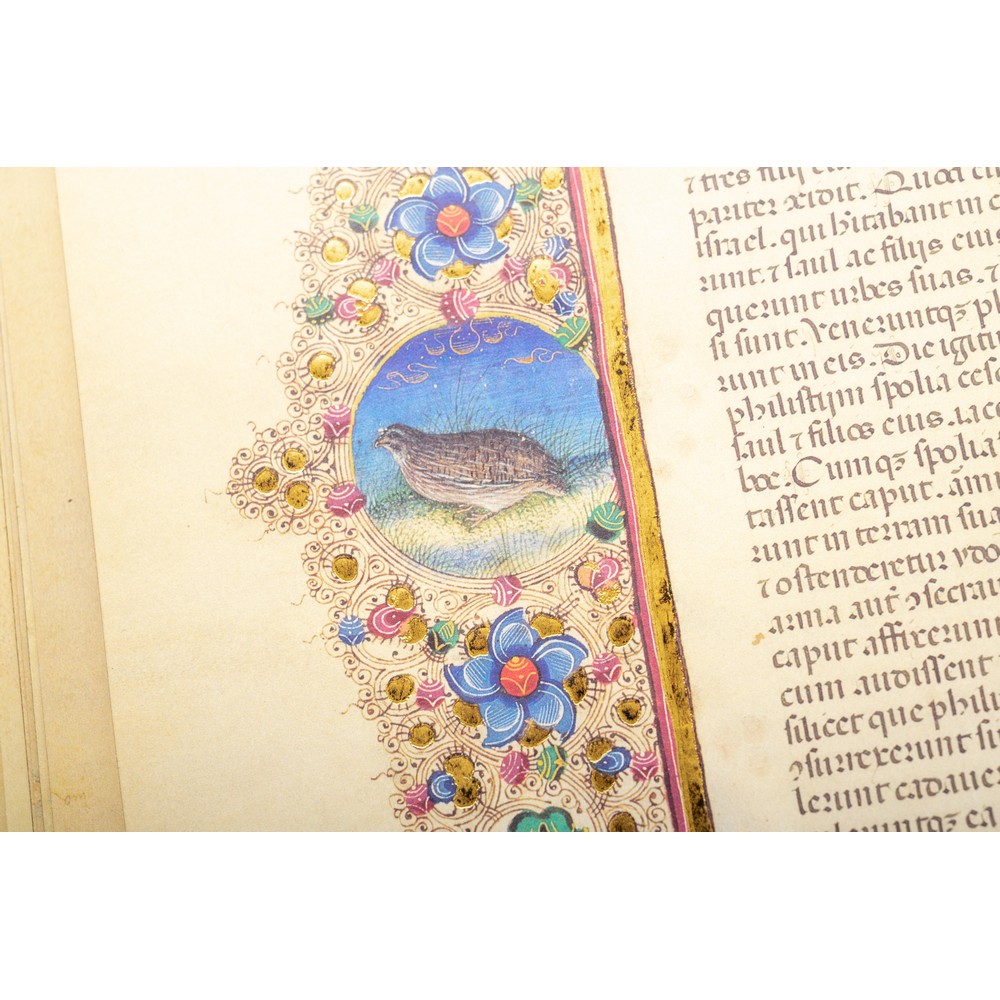 pariter cecidit. Quod cu
israel. qui hitabant in c
runt. ⁊ saul ac filijs eius
querunt urbes suas. ⁊
si sunt. Veneruntqꝫ ph
runt in eis. Die igitu
philistijm spolia cesor
saul ⁊ filios eius. iace
boe. Cumqꝫ spolia
tassent caput. ãmi
runt in terram sua
⁊ ostenderetur ydo
arma aut̃ ꝯsecrau
caput affixerunt
cum audissent
silicet que phili
ꝯsurrexerunt si
lerunt cadauer